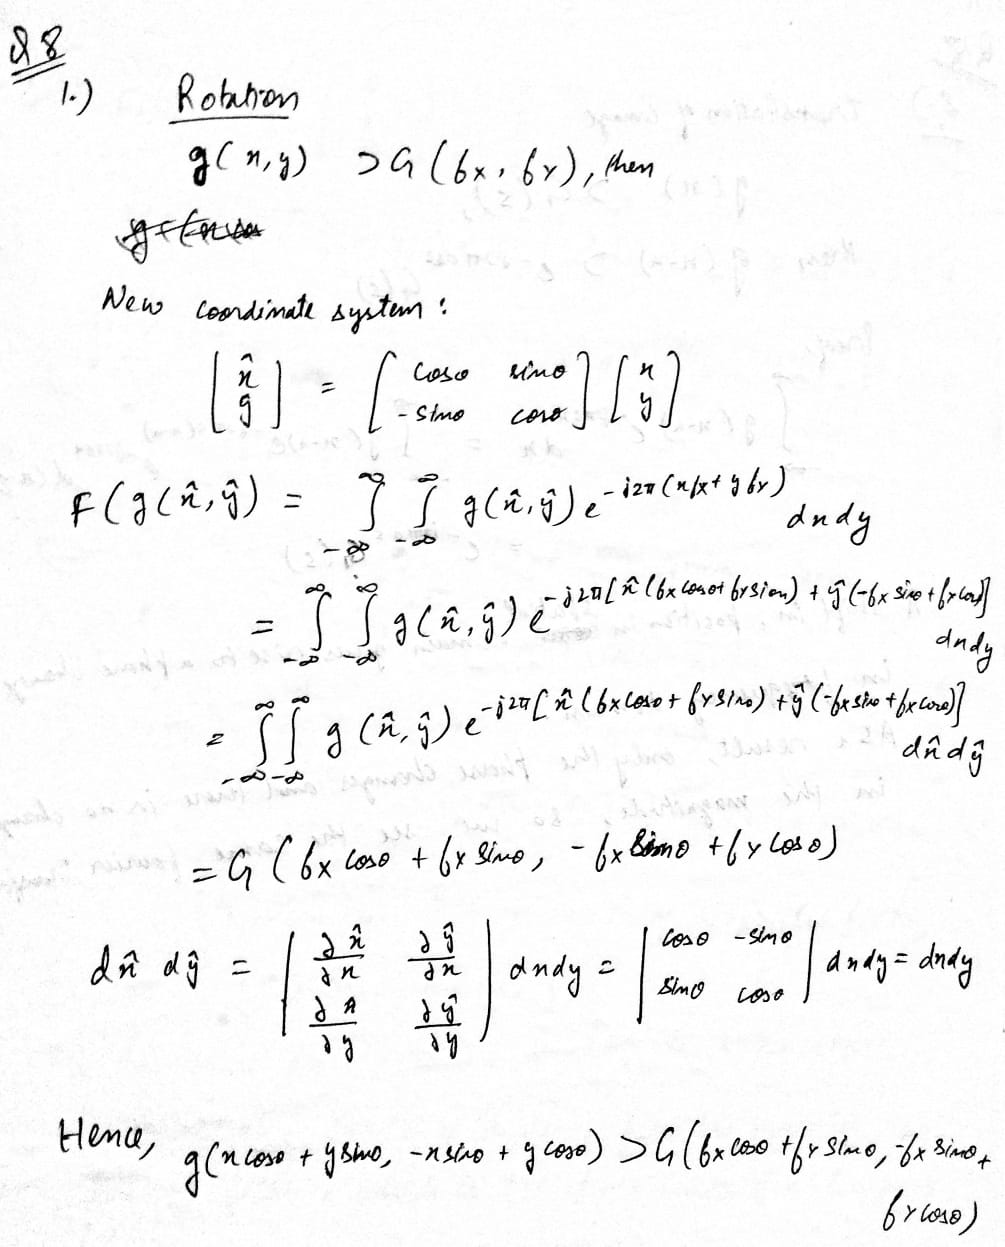 Q8
1.) Rotation
g(x,y) ⊃ G(fx, fy), then
New coordinate system :
[x̂ ŷ] = [cosθ sinθ -sinθ cosθ] [x y]
F(g(x̂,ŷ) = ∞∫-∞ ∞∫-∞ g(x̂,ŷ) e^-j2π(xfx + y fy) dxdy
= ∞∫-∞ ∞∫-∞ g(x̂,ŷ) e^-j2π[x̂(fx cosθ + fy sinθ) + ŷ(-fx sinθ + fy cosθ)] dxdy
= ∞∫-∞ ∞∫-∞ g(x̂,ŷ) e^-j2π[x̂(fx cosθ + fy sinθ) + ŷ(-fx sinθ + fx cosθ)] dx̂ dŷ
= G(fx cosθ + fx sinθ, -fx sinθ + fy cosθ)
dx̂ dŷ = |∂x̂/∂x ∂ŷ/∂x ∂x̂/∂y ∂ŷ/∂y| dxdy = |cosθ -sinθ sinθ cosθ| dxdy = dxdy
Hence, g(x cosθ + y sinθ, -x sinθ + y cosθ) ⊃ G(fx cosθ + fy sinθ, -fx sinθ +
fy cosθ)